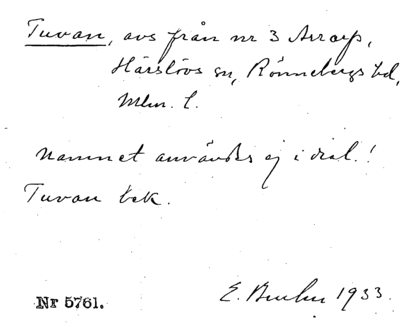 Tuvan, avs från nr 3 Asrarp,
Härslövs sn, Rönnebergs hd,
Mlm. l.
Namnet användes ej i dial.!
Tuvan bek.
E. 1933.
Nr 5761.